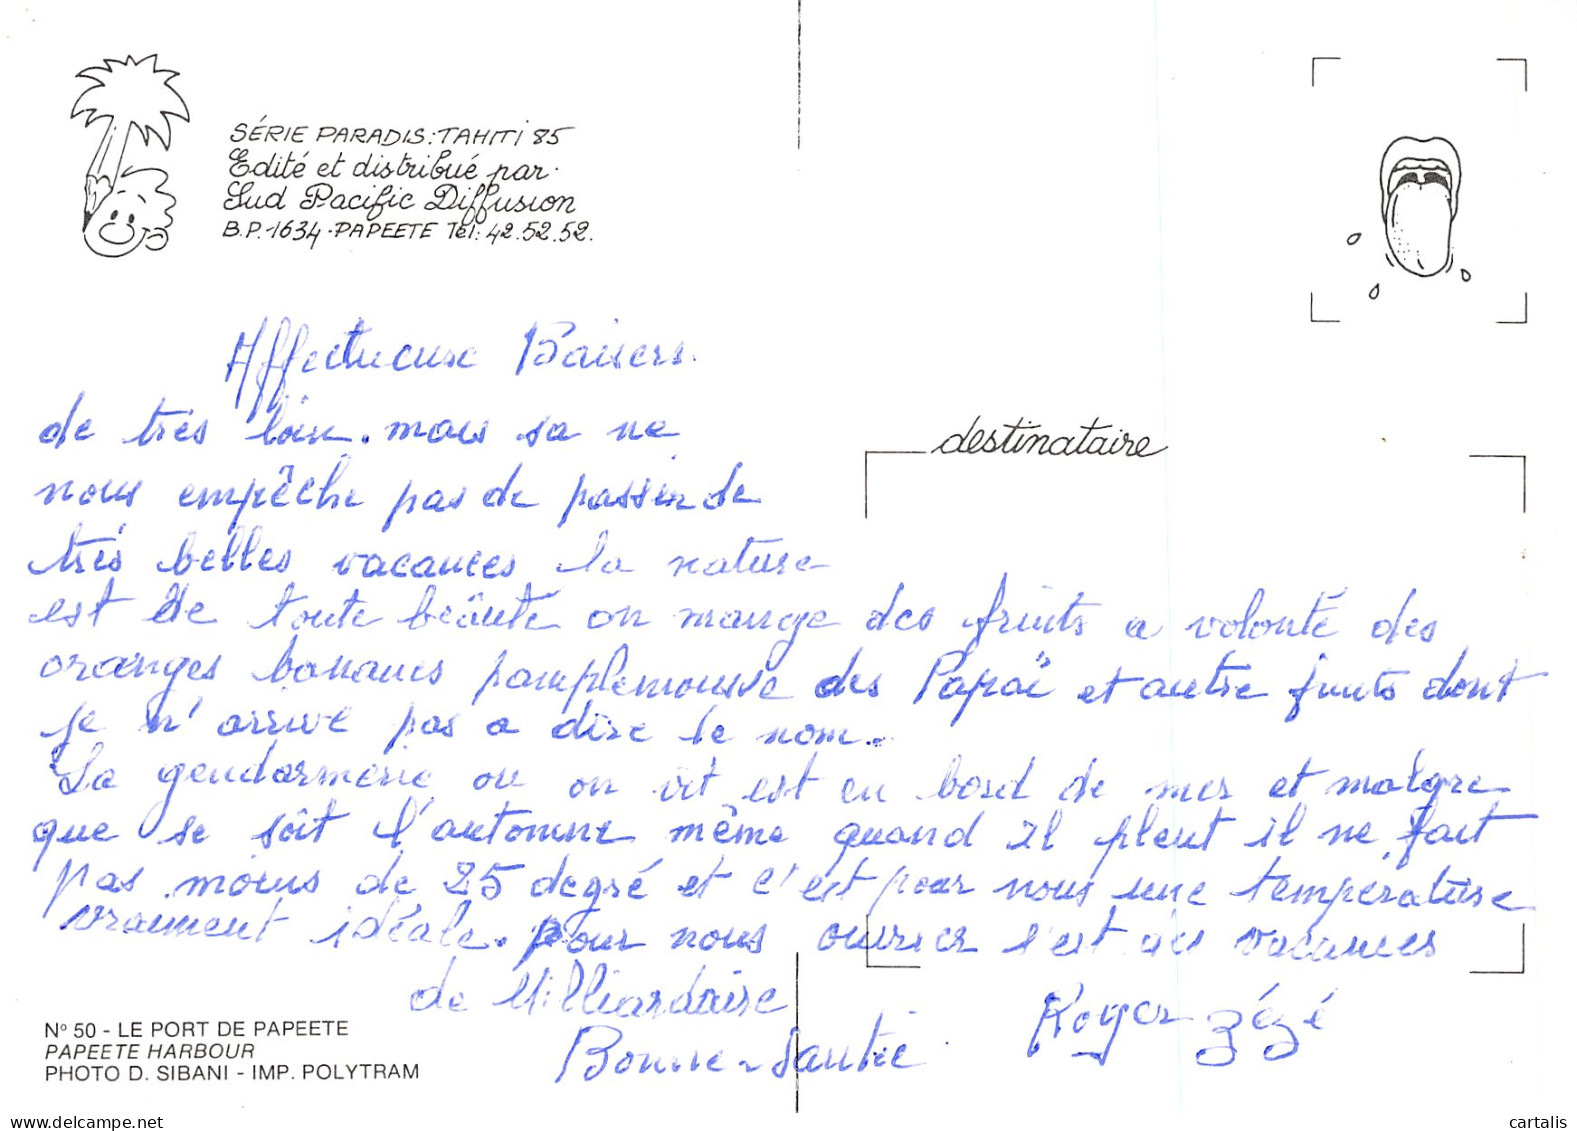 SÉRIE PARADIS: TAHITI 85
Edité et distribué par
Sud Pacific Diffusion
B.P. 1634 - PAPEETE Tél: 42.52.52.
Affectueuse Baisers.
de très loin. mais sa ne
nous empêche pas de passer de
très belles vacances la nature
est de toute beauté on mange des fruits a volonté des
destinataire
oranges bananes pamplemousse des Papaï et autre fruits dont
je n'arrive pas a dire le nom.
La gendarmerie ou on vit est en bord de mer et malgre
que se soit l'automne même quand il pleut il ne fait
pas moins de 25 degré et c'est pour nous une température
vraiment idéale. pour nous ouvrier s'est des vacances
de Milliardaire
Bonne Santée
Roger Zézé
N° 50 - LE PORT DE PAPEETE
PAPEETE HARBOUR
PHOTO D. SIBANI - IMP. POLYTRAM
www.delcampe.net
cartalis